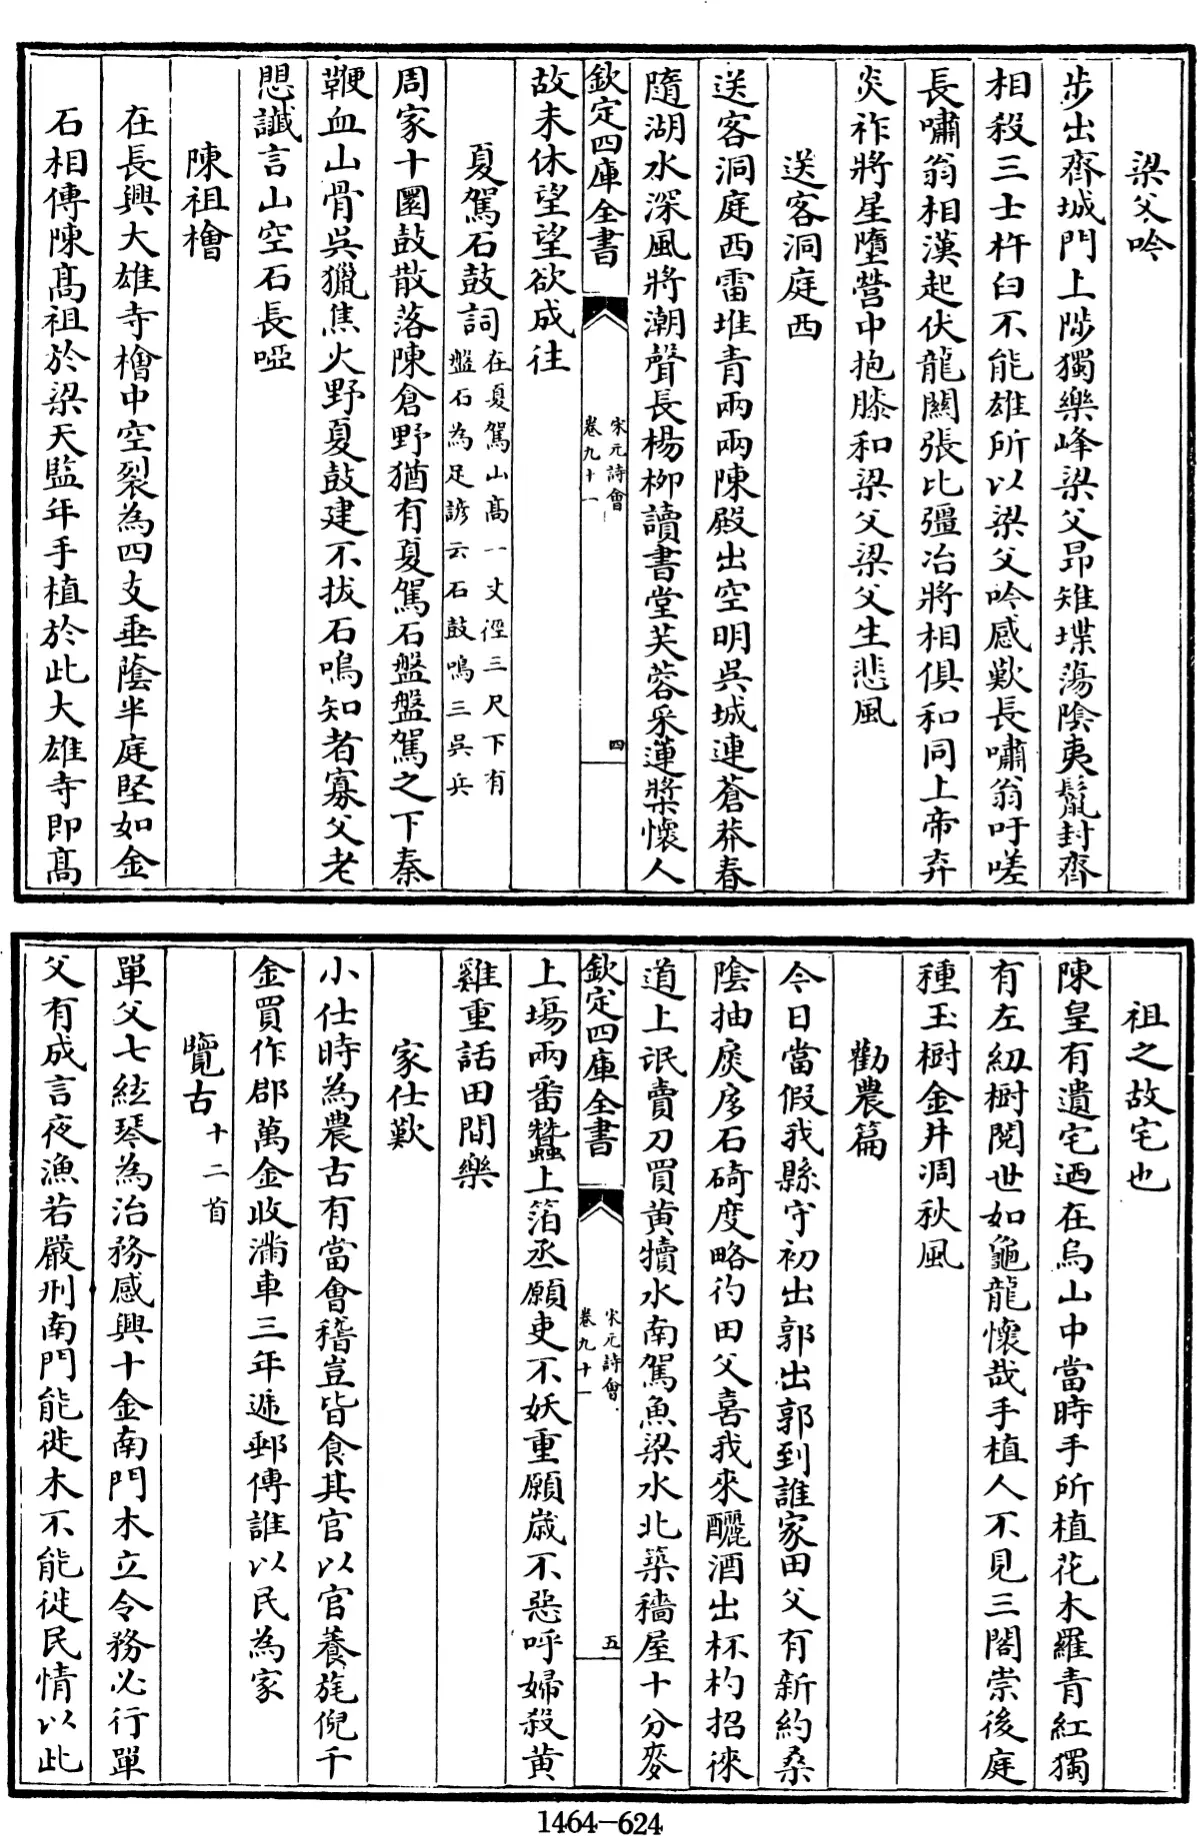 梁父吟
步出齊城門上陟獨樂峰梁父昂雉堞蕩陰夷鬣封齊
相殺三士杵臼不能雄所以梁父吟感歎長嘯翁吁嗟
長嘯翁相漢起伏龍關張比彊冶將相俱和同上帝弃
炎祚將星墮營中抱膝和梁父梁父生悲風
送客洞庭西
送客洞庭西雷堆青兩兩陳殿出空明吳城連蒼莽春
隨湖水深風將潮聲長楊柳讀書堂芙蓉采蓮槳懷人
欽定四庫全書
宋元詩會
卷九十一
四
故未休望望欲成往
夏駕石鼓詞
在夏駕山高一丈徑三尺下有
盤石為足諺云石鼓鳴三吳兵
周家十圍鼓散落陳倉野猶有夏駕石盤盤駕之下秦
鞭血山骨吳獵焦火野夏鼓建不拔石鳴知者寡父老
愳讖言山空石長啞
陳祖檜
在長興大雄寺檜中空裂為四支垂蔭半庭堅如金
石相傳陳髙祖於梁天監年手植於此大雄寺即髙
祖之故宅也
陳皇有遺宅迺在烏山中當時手所植花木羅青紅獨
有左紐樹閱世如龜龍懷哉手植人不見三閣崇後庭
種玉樹金井凋秋風
勸農篇
今日當假我縣守初出郭出郭到誰家田父有新約桑
陰抽戾㡿石碕度略彴田父喜我來釃酒出杯杓招徠
道上氓賣刀買黄犢水南駕魚梁水北築穡屋十分麥
欽定四庫全書
宋元詩會
卷九十一
五
上場兩番蠶上箔丞願吏不妖重願歲不惡呼婦殺黄
雞重話田間樂
家仕歎
小仕時為農古有當會稽豈皆食其官以官養旄倪千
金買作郡萬金收滿車三年遞郵傳誰以民為家
覽古
十二首
單父七絃琴為治務感興十金南門木立令務必行單
父有成言夜漁若嚴刑南門能徙木不能徙民情以此
1464—624